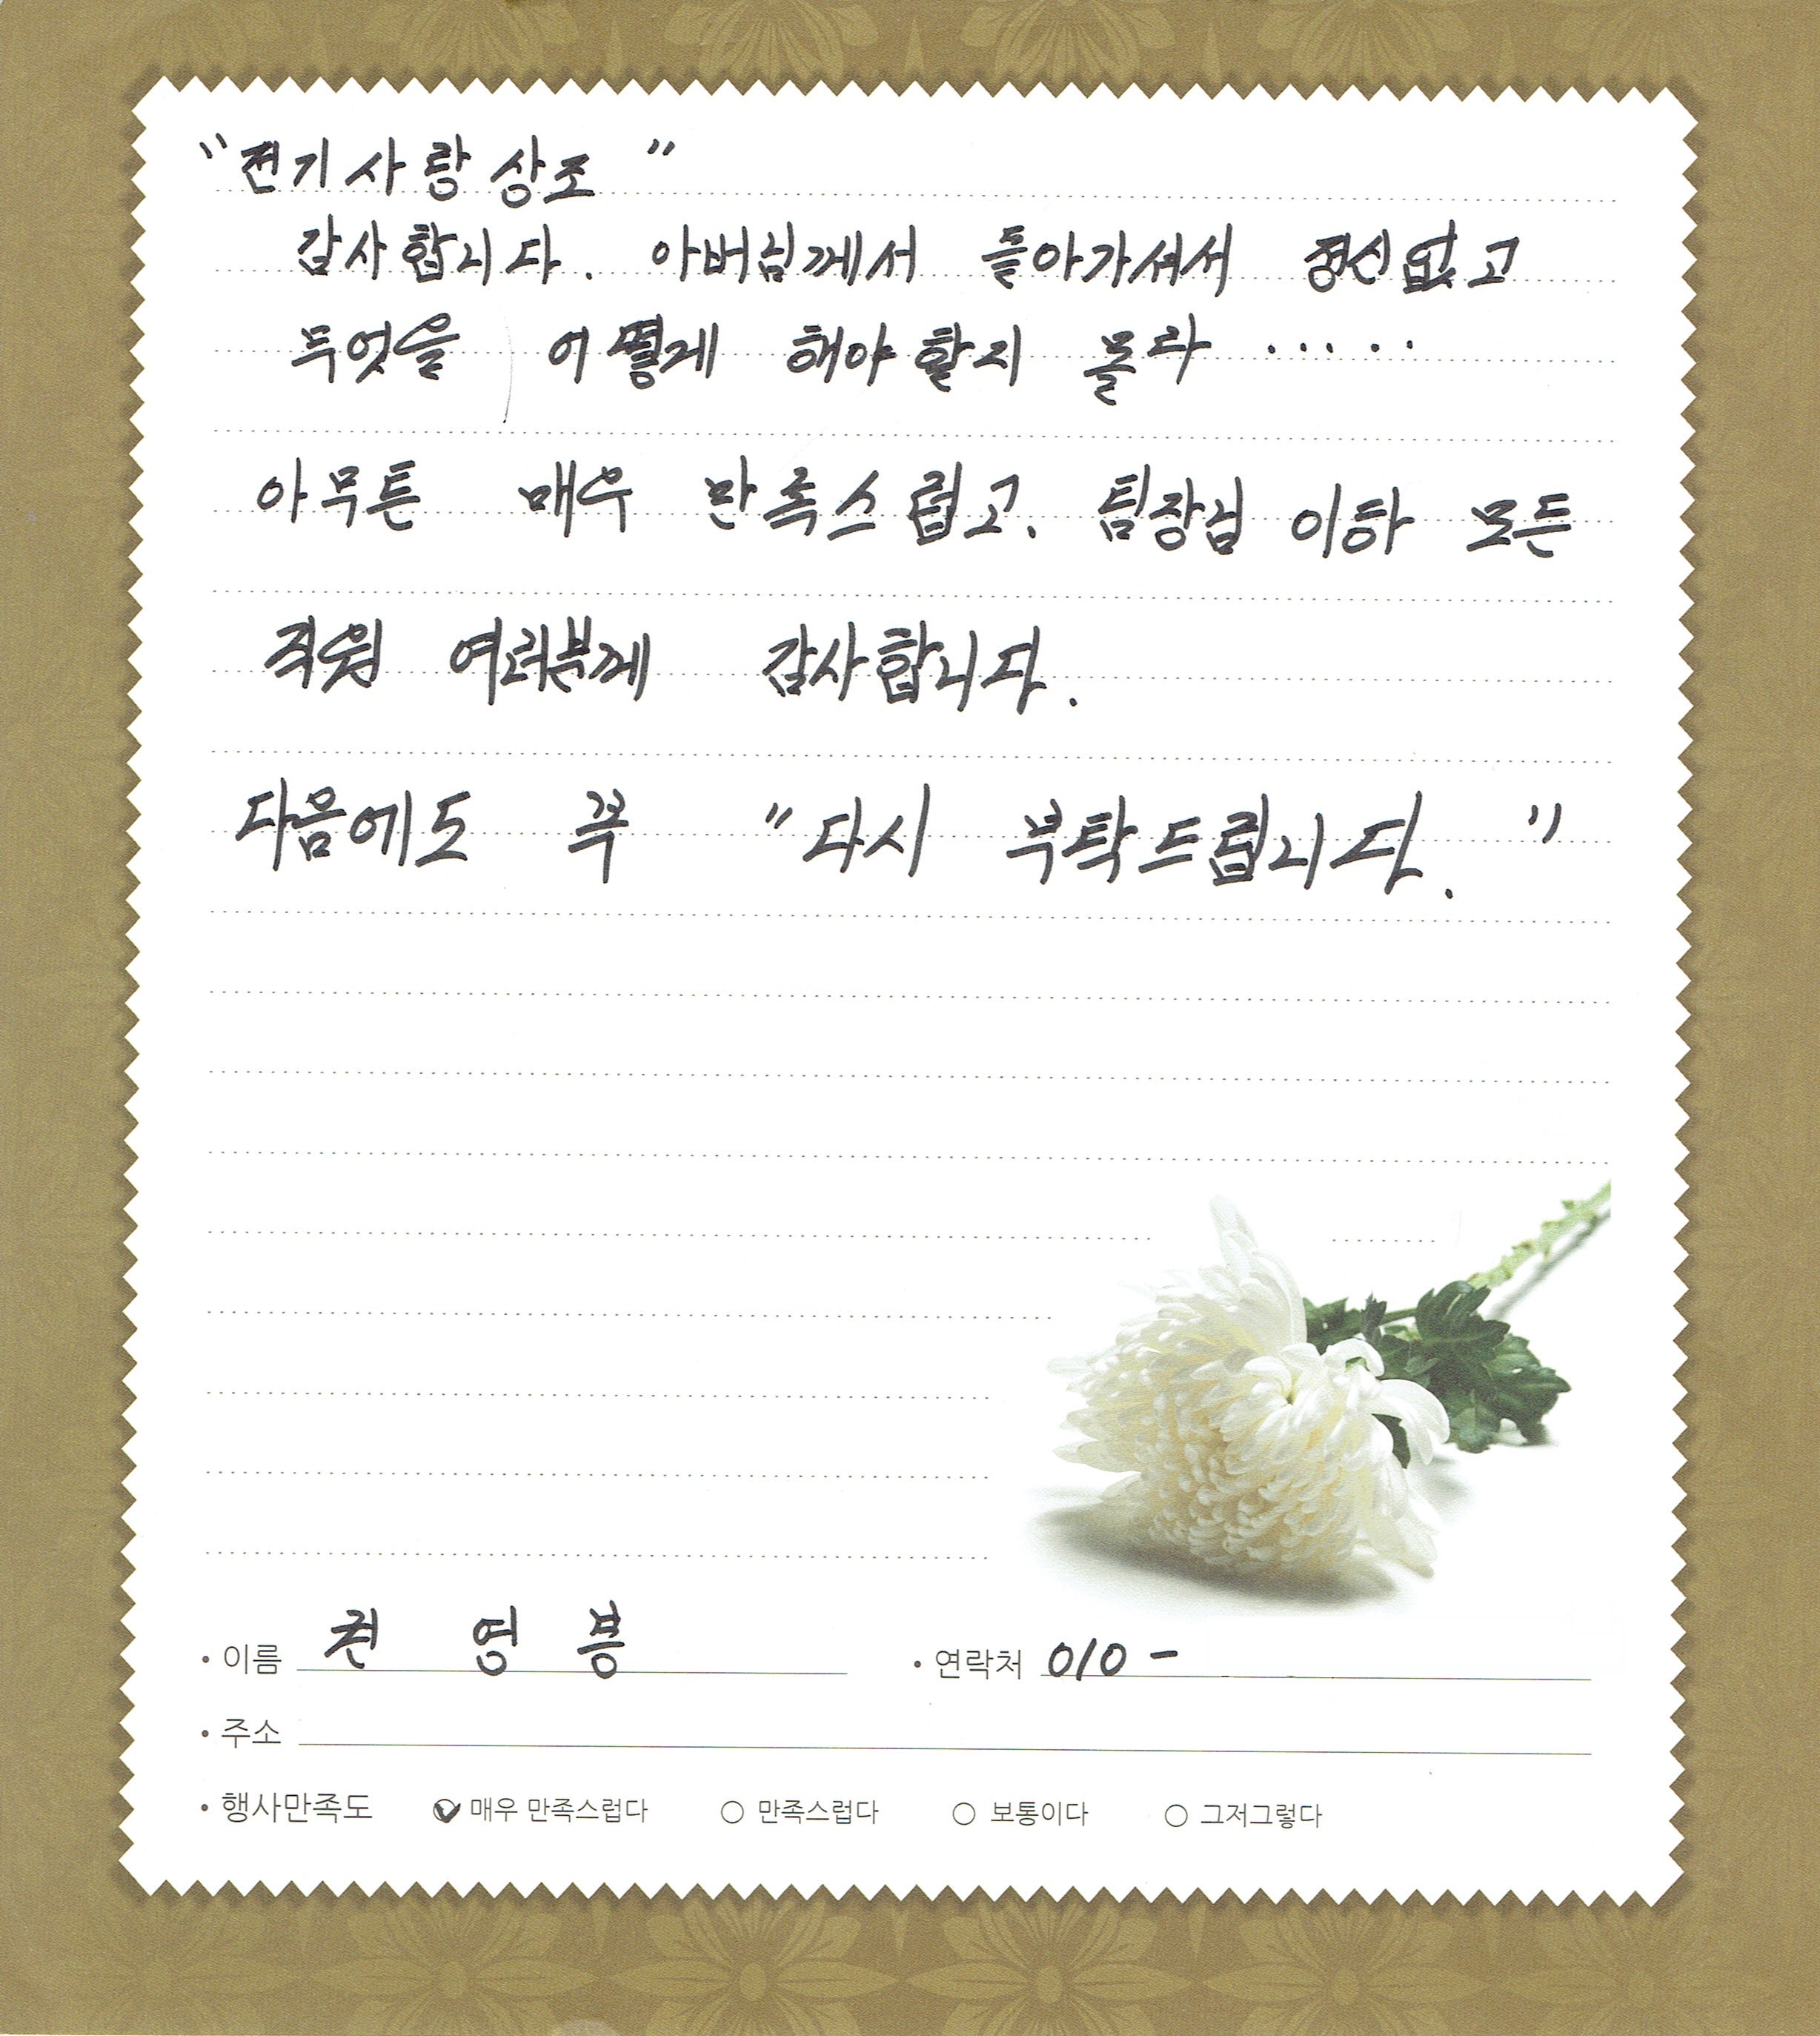 "전기사랑상조"
감사합니다. 아버님께서 돌아가셔서 정신없고
무엇을 어떻게 해야할지 몰라 .....
아무튼 매우 만족스럽고. 팀장님 이하 모든
직원 여러분께 감사합니다.
다음에도 꼭 "다시 부탁드립니다."
• 이름 권 영 봉 • 연락처 010 -
• 주소
• 행사만족도 매우 만족스럽다 ○ 만족스럽다 ○ 보통이다 ○ 그저그렇다